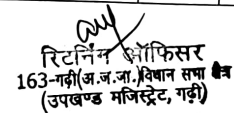 रिटर्निंग ऑफिसर
163-गढ़ी(अ.ज.जा.)विधान सभा क्षेत्र
(उपखण्ड मजिस्ट्रेट, गढ़ी)